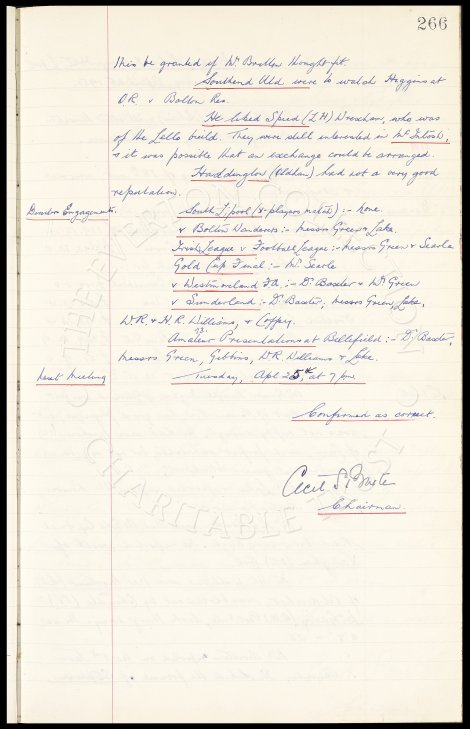 266
this be granted if Mr Britton thought fit.
Southend Utd were to watch Higgins at
O.R. v Bolton Res.
He liked Speed (L.H) Wrexham, who was
of the Lello build. They were still interested in McIntosh,
& it was possible that an exchange could be arranged.
Haddington (Oldham) had not a very good
reputation.
Directors Engagements.
South L'pool (4-players match) :- None.
v Bolton Wanderers :- Messrs Green & Lake.
Irish League v Football League :- Messrs Green & Searle
Gold Cup Final :- Mr Searle
v Westmoreland FA :- Dr Baxter & Mr Green
v Sunderland :- Dr Baxter, Messrs Green, Lake,
W.R. & H.R. Williams, & Coffey.
Amateur Presentations at Bellefield :- Dr Baxter,
Messrs Green, Gibbins, W.R. Williams & Lake.
Next Meeting
Tuesday, Apl 25th, at 7 pm
Confirmed as correct.
Cecil S. Baxter
Chairman
THE EVERTON
CHARITABLE TRUST